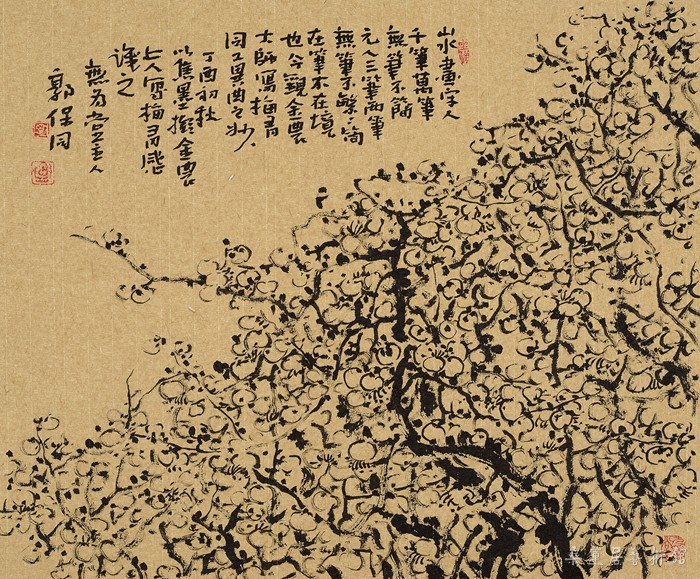 山水畫宋人
千筆萬筆
無筆不簡
元人三筆兩筆
無筆不繁簡
在筆不在境
也今觀金農
大師寫梅有
同工異曲之妙.
丁酉初秋
以焦墨擬金農
人寫梅有感
識之
無为堂主人
郭保同
居藝術館